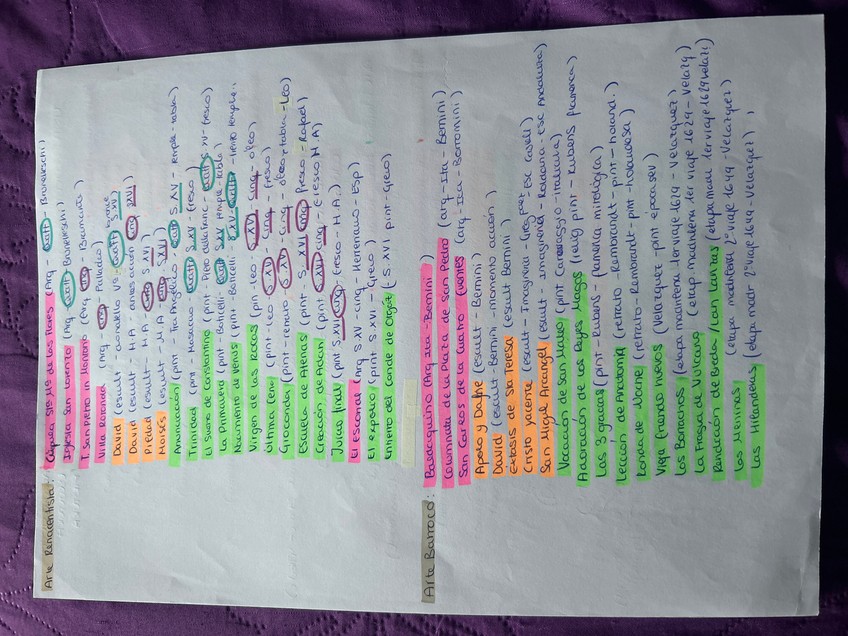 Arte Renacentista:
Cúpula Sta Mª de las Flores (Arq quatt Brunelleschi)
Iglesia San Lorenzo (Arq quatt Brunelleschi)
T. San Pietro in Montorio (Arq cinq - Bramante)
Villa Rotonda (Arq cinq - Palladio)
David (escult donatello Yº quatt bronce S.XV)
David (escult H.A antes acción cinq S.XVI)
Piedad (escult - H.A cinq S.XVI)
Moisés (escult - H.A cinq S.XVI)
Anunciación (pint - Fra Angelico - quatt S.XV - temple - tabla)
Trinidad (pint Masaccio quatt S.XV fresco)
El sueño de Constantino (pint Piero dellafranc - quatt XV - fresco)
La Primavera (pint Boticelli quatt S.XV temple - tabla)
Nacimiento de Venus (pint - Boticelli S.XV quatt - lienzo temple.
Virgen de las Rocas (pin Leo S.XVI cinq - óleo)
Última Cena (pint - Leo S.XV - cinq - fresco)
Gioconda (pint - retrato S.XVI - cinq óleo + tabla - Leo)
Escuela de Atenas (pint S.XVI cinq fresco - Rafael)
Creación de Adán (pint S.XVI cinq - fresco H A)
Juicio final (pint S.XVI cinq - fresco - H.A.)
El escorial (Arq S.XV - cinq - Herreriano - Esp)
El expolio (pint S.XVI - Greco)
Entierro del Conde de Orgaz (S.XVI pint - Greco)
Arte Barroco:
Baldaquino (Arq Ita - Bernini)
Columnata de la Plaza de San Pedro (arq - Ita - Bernini)
San Carlos de la Cuatro fuentes (arq - Ita - Borromini)
Apolo y Dafne (escult Bernini)
David (escult Bernini - momento acción)
Éxtasis de Sta Teresa (escult Bernini)
Cristo yacente (escult - Imaginería -
San Miguel Arcangel (escult - imaginería - Roldana - Esc Andaluza)
Vocación de San Mateo (pint Caravaggio - Italia)
Adoración de los Reyes Magos (relig pint - Rubens flamenca)
Las 3 gracias (pint - Rubens - flamenca mitológica)
Lección de Anatomía (retrato - Rembrandt - pint - holand.)
Ronda de Noche (retrato - Rembrandt - pint - holandesa)
Vieja friendo huevos (Velazquez - pint época sev)
Los Borrachos (etapa madrileña 1er viaje 1629 - Velazquez)
La Fragua de Vulcano (etapa madrileña 1er viaje 1629 - Velazq)
Rendición de Breda / Las Lanzas (etapa madr 1er viaje 1629 velaz)
Las Meninas (etapa madrileña 2º viaje 1649 - Velazquez)
Las Hilanderas (etapa madr 2º viaje 1649 - Velazquez)